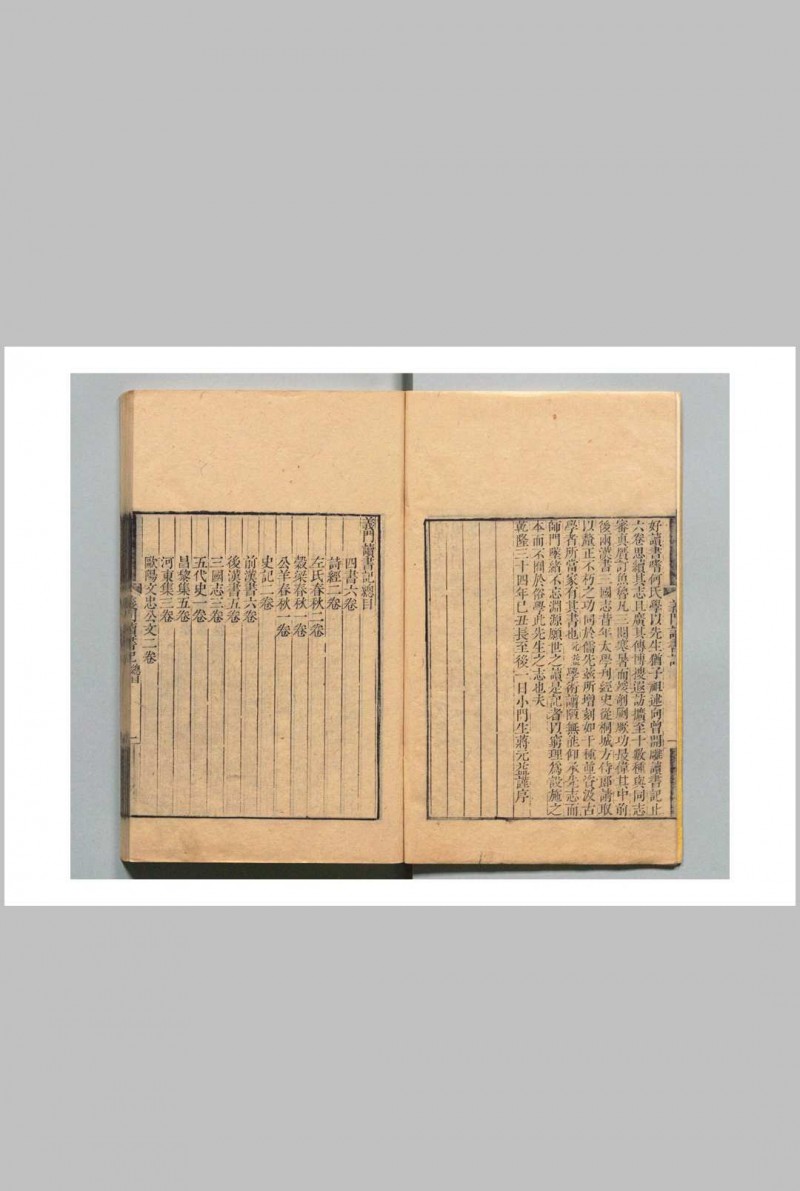 好讀書嗜何氏學以先生猶子祖述向曾開雕讀書記止
六卷思續其志且廣其傳博搜遐訪擴至十數種與同志
審真贋訂魚魯凡三閱寒暑而竣剞劂厥功最偉其中前
後兩漢書三國志昔年太學刊經史從桐城方侍郎請取
以釐正不朽之功同於儒先茲所增刻如干種董資汲古
學者所當家有其書也元益學術譾陋無能仰承先志而
師門墜緒不忘淵源願世之讀是記者以窮理為設施之
本而不囿於俗學此先生之志也夫
乾隆三十四年己丑長至後一日小門生蔣元益謹序
義門讀書記
義門讀書記總目
四書六卷
詩經二卷
左氏春秋二卷
穀梁春秋一卷
公羊春秋一卷
史記二卷
前漢書六卷
後漢書五卷
三國志三卷
五代史一卷
昌黎集五卷
河東集三卷
歐陽文忠公文二卷
義門讀書記 總目
一